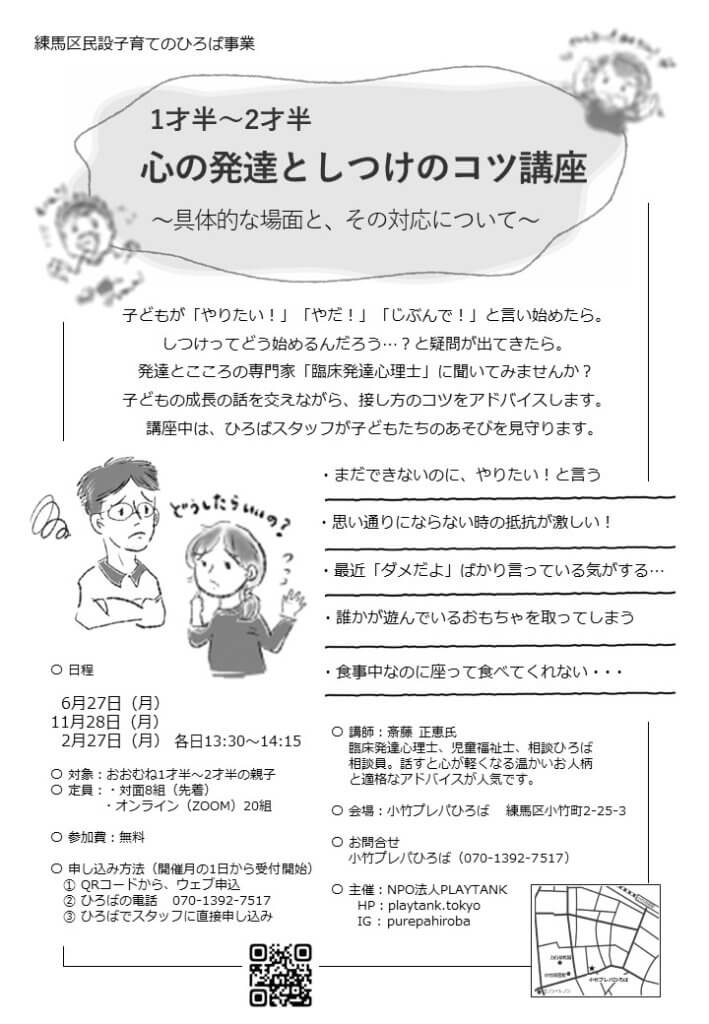 練馬区民設子育てのひろば事業
1才半～2才半
心の発達としつけのコツ講座
～具体的な場面と、その対応について～
子どもが「やりたい！」「やだ！」「じぶんで！」と言い始めたら。
しつけってどう始めるんだろう…？と疑問が出てきたら。
発達とこころの専門家「臨床発達心理士」に聞いてみませんか？
子どもの成長の話を交えながら、接し方のコツをアドバイスします。
講座中は、ひろばスタッフが子どもたちのあそびを見守ります。
どうしたらいいの？
・まだできないのに、やりたい！と言う
・思い通りにならない時の抵抗が激しい！
・最近「ダメだよ」ばかり言っている気がする…
・誰かが遊んでいるおもちゃを取ってしまう
・食事中なのに座って食べてくれない・・・
〇 日程
6月27日（月）
11月28日（月）
2月27日（月） 各日13:30～14:15
〇 対象：おおむね1才半～2才半の親子
〇 定員：・対面8組（先着）
・オンライン（ZOOM）20組
〇 参加費：無料
〇 申し込み方法（開催月の1日から受付開始）
① QRコードから、ウェブ申込
② ひろばの電話　070-1392-7517
③ ひろばでスタッフに直接申し込み
〇 講師：斎藤 正恵氏
臨床発達心理士、児童福祉士、相談ひろば
相談員。話すと心が軽くなる温かいお人柄
と適格なアドバイスが人気です。
〇 会場：小竹プレパひろば　練馬区小竹町2-25-3
〇 お問合せ
小竹プレパひろば（070-1392-7517）
〇 主催：NPO法人PLAYTANK
HP：playtank.tokyo
IG：purepahiroba
小竹プレパひろば